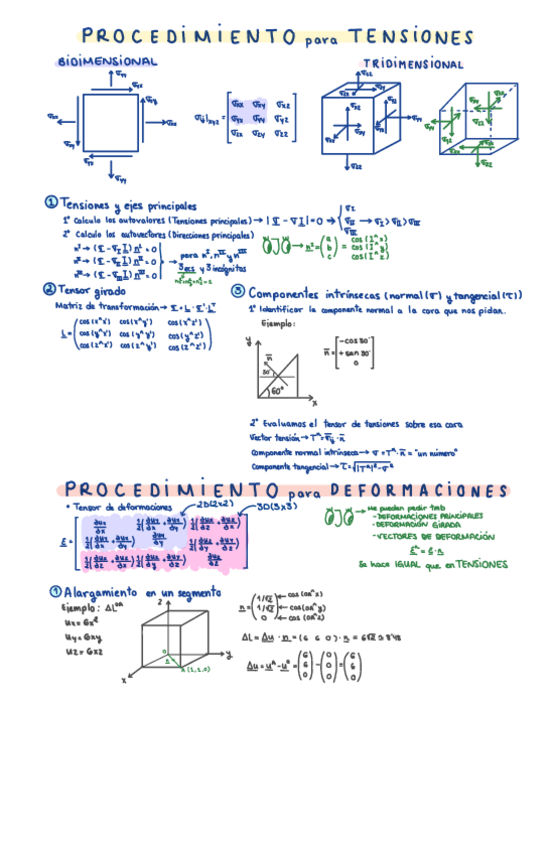 PROCEDIMIENTO para TENSIONES
BIDIMENSIONAL
TRIDIMENSIONAL
σij|xyz = [σxx σxy σxz
σyx σyy σyz
σzx σzy σzz]
① Tensiones y ejes principales
1º Calculo los autovalores (Tensiones principales) → |σ - σI| = 0 → {σI σII σIII → σI > σII > σIII
2º Calculo los autovectores (Direcciones principales)
nI → (σ - σI I) nI = 0
nII → (σ - σII I) nII = 0
nIII → (σ - σIII I) nIII = 0
→ para nI, nII y nIII
3ecs y 3 incógnitas
OJO → nI = (a b c) = cos(I^x) cos(I^y) cos(I^z)
② Tensor girado
Matriz de transformación →
L = (cos(x^x') cos(x^y') cos(x^z')
cos(y^x') cos(y^y') cos(y^z')
cos(z^x') cos(z^y') cos(z^z'))
③ Componentes intrínsecas (normal (σ) y tangencial (τ))
1º Identificar la componente normal a la cara que nos pidan.
Ejemplo:
y
n
30º
60º
x
n = [-cos 30º
+ sen 30º
0]
2º Evaluamos el tensor de tensiones sobre esa cara
Vector tensión → Tn = σij · n
Componente normal intrínseca → σ = Tn · n = "un número"
Componente tangencial → τ = √|Tn|² - σ²
PROCEDIMIENTO para DEFORMACIONES
• Tensor de deformaciones
2D(2x2)
3D(3x3)
OJO → Me pueden pedir tmb
- DEFORMACIONES PRINCIPALES
- DEFORMACIÓN GIRADA
- VECTORES DE DEFORMACIÓN
Se hace IGUAL que en TENSIONES
① Alargamiento en un segmento
Ejemplo: ΔL^OA
ux = 6x²
uy = 6xy
uz = 6xz
z
y
x
O
A (1,1,0)
n = (1/√2 1/√2 0) ← cos (OA^x) ← cos (OA^y) ← cos (OA^z)
ΔL = Δu · n = (6 6 0) · n = 6√2
Δu = uA - uO = (6 6 0) - (0 0 0) = (6 6 0)